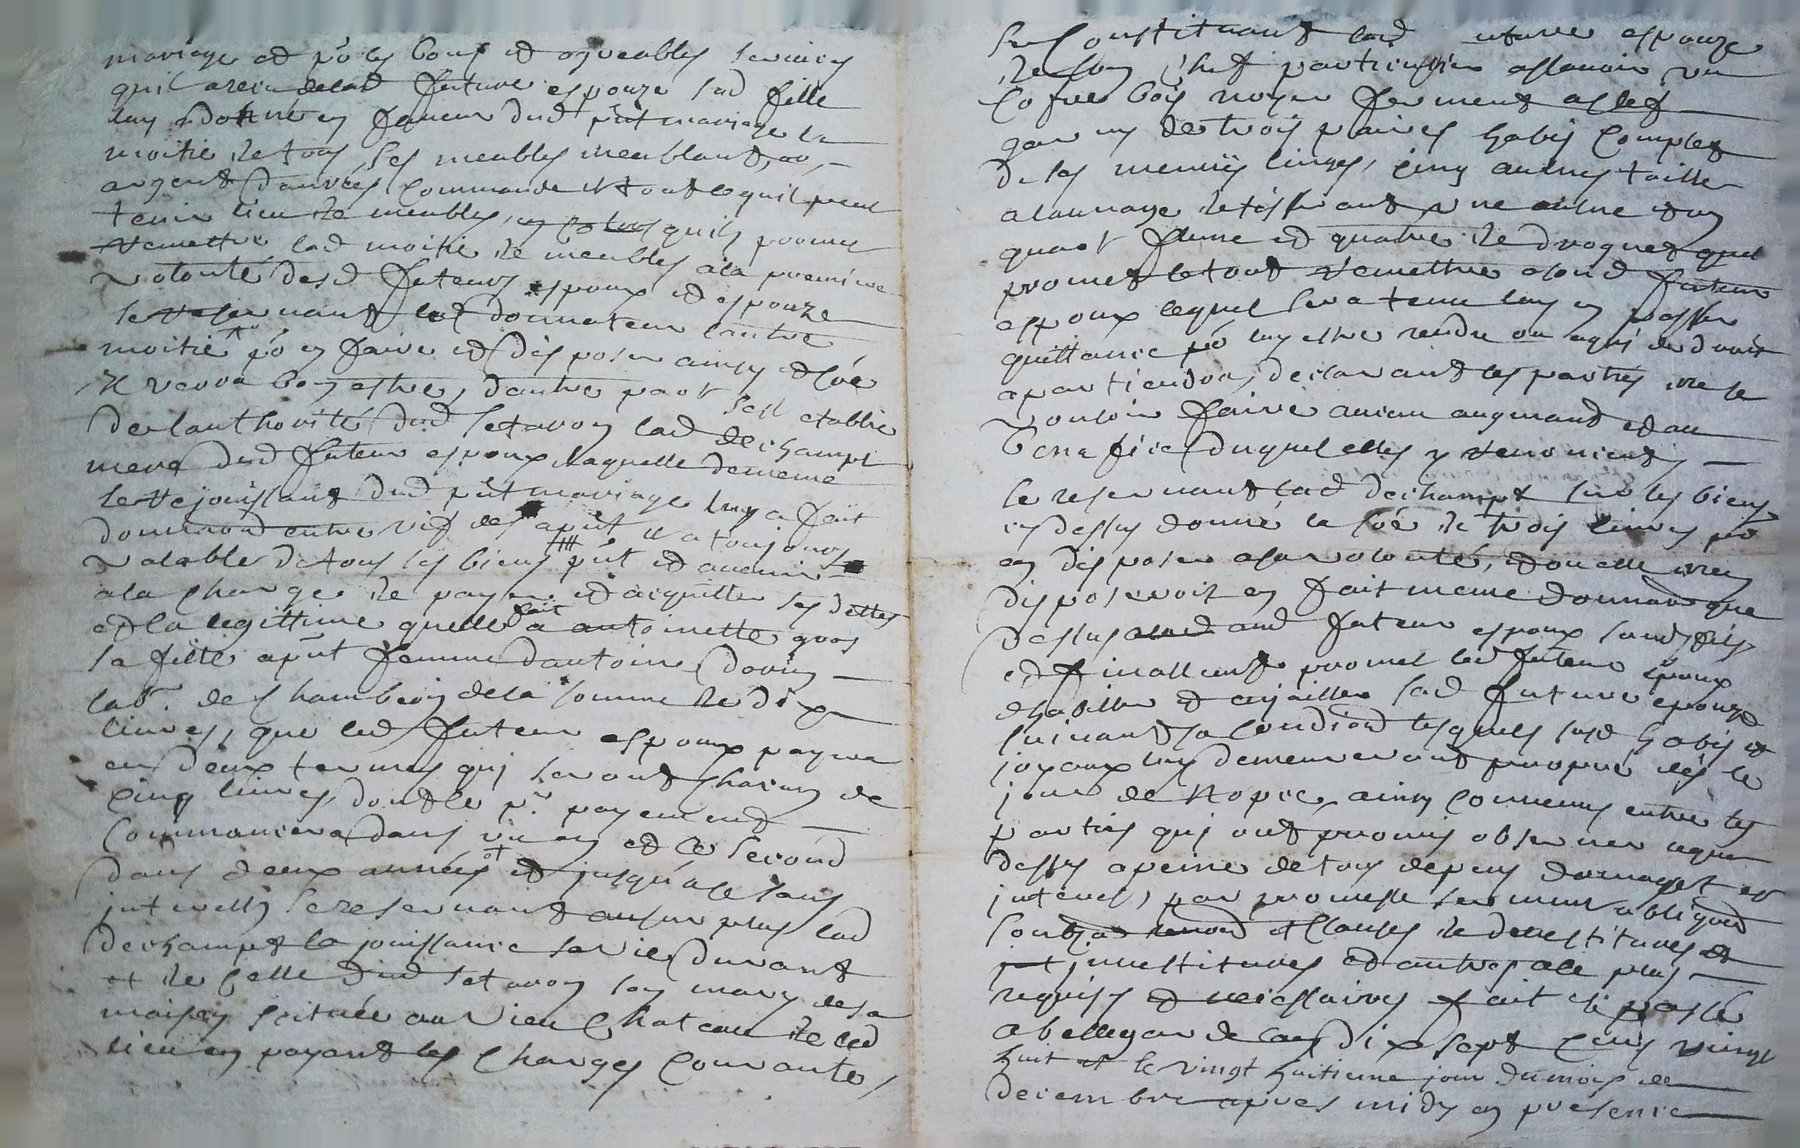 mariage et po les bons et agreables services
quil a receu de lad future espouze sad fille
luy a donné en faveur dud p̃nt mariage la
moitié de tous ses meubles meublant, or,
argent danrées commande et tout ce quil peut
tenir lieu de meubles, quils promet
remettre lad moitié de meubles a la premiere
volonté desd futeurs espoux et espouze
se reservant led donnateur lautre
moitié po en faire et disposer ainsy et coe
il verra bon estre, dautre part sest etablie
de lauthorité dud setavoy lad dechampt
mere dud futeur espoux laquelle de meme
se rejouissant dud p̃nt mariage luy a fait
donnaod entre vifz des apñt et a toujours
valable de tous ses biens pñt et avenir
a la charge de payer et acquitter ses dettes
et la legittime quelle fait a antoinette gros
sa fille apñt femme dantoine dorin
labr. de chambeon de la somme de dix
livres, que led futeur espoux payera
en deux termes qui seront chacun de
cinq livres, dont le pr payement
commancera dans un an et le second
dans deux années et jusqu'a ce sans
interestz se reservant au surplus lad
dechampt la jouissance sa vie durant
et de celle dud setavoy son mary de sa
maison scituée au vieu chateau de ced
lieu en payant les charges courantes,
se constituant lad future espouze
de son chef particulier assavoir un
cofre bois noyer fermant a clef
garny de trois paires habis complet
de ses menus linges, cinq aulnes toille
a launage et une aulne et un
quart et quatre de droguet quel
promet le tout remettre aud futeur
espoux lequel sera tenu luy en passer
quittance po luy estre rendu ou a qui de droit
apartiendra, declarant les parties ne se
vouloir faire aucun augmant et au
benefice duquel elles y renoncent
se reservant lad dechampt sur les biens
cy dessus donné la soe de trois livres po
en disposer a sa volonté, et ou elle n'en
disposeroit en fait meme donnaod que
dessus aud futeur espoux sond fils
et finallemt promet led futeur epoux
dhabiller et enjoailler sad future epouze
suivant sa condiod lesquels susd habis et
joyaux luy demeureront propre dés le
jour de nopce, ainsy convenus entre les
parties qui ont promis observer que
dessus a peine de tous depens domages et
interest, par promesse serment obligaod
soubz renod et clauses de devestitures et
investitures et autres a ce plus
requises et necessaires fait et passé
a bellegarde lan dix sept cens vingt
huit et le vingt huitieme jour du mois de
decembre apres midy en presence